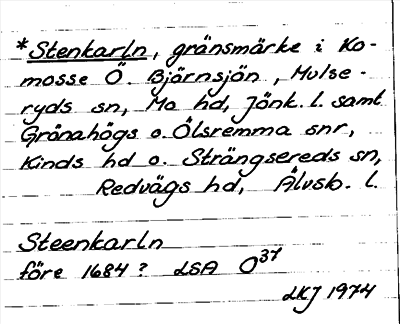 *Stenkarln, gränsmärke i Ko-
mosse Ö. Björnsjön, Mulse-
ryds sn, Mo hd, Jönk. l. samt
Grönahögs o. Ölsremma snr,
Kinds hd o. Strängsereds sn,
Redvägs hd, Älvsb. l.
Steenkarln
före 1684? LSA O37
LKJ 1974